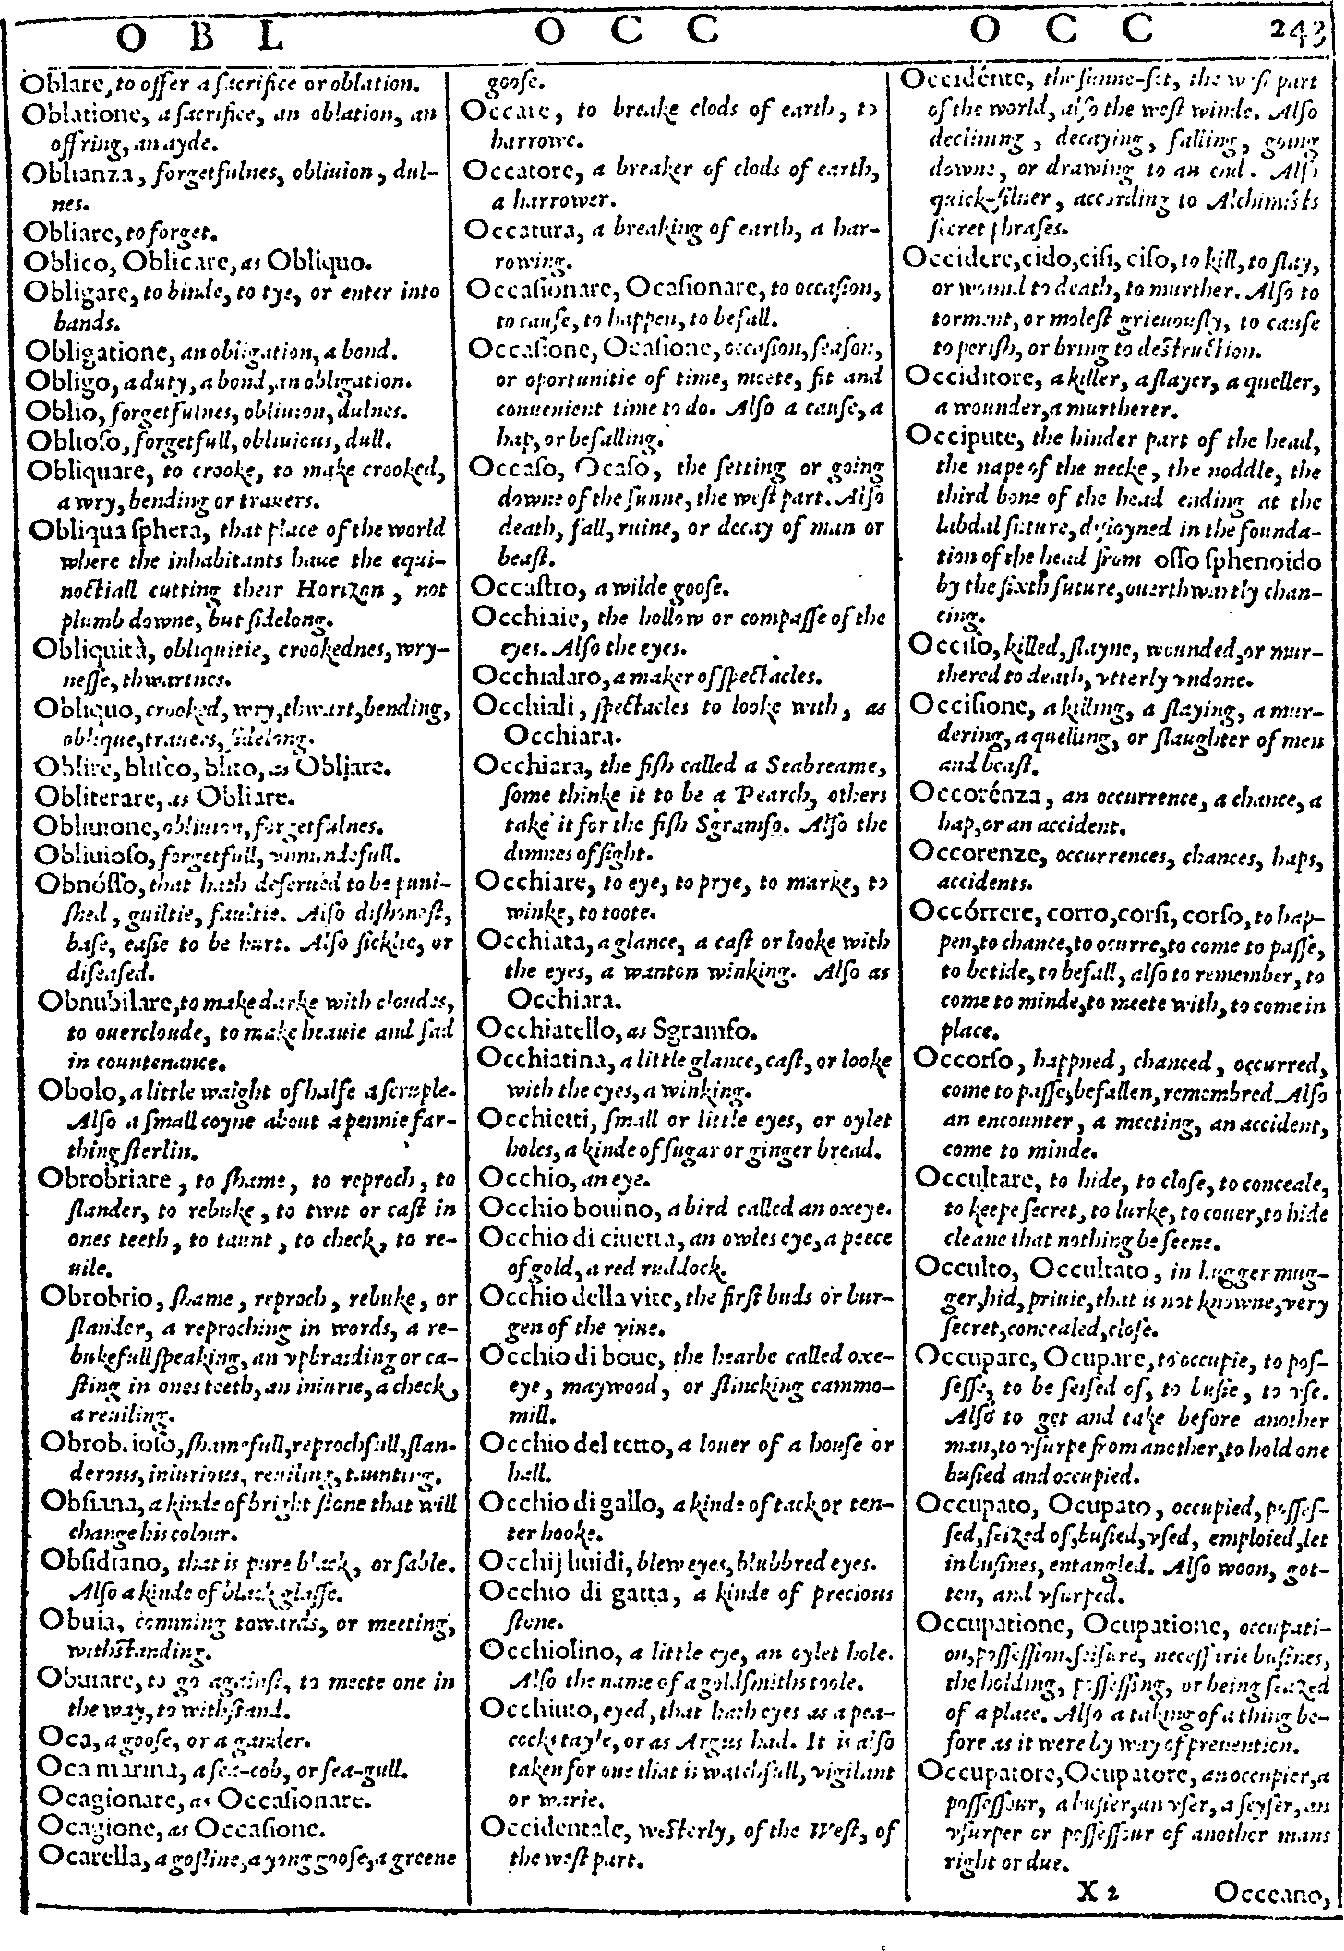 O B L
O C C
O C C
243
Oblare, to offer a sacrifice or oblation.
Oblatione, a sacrifice, an oblation, an
offring, an ayde.
Oblianza, forgetfulnes, obliuion, dul-
nes.
Obliare, to forget.
Oblico, Oblicare, as Obliquo.
Obligare, to binde, to tye, or enter into
bands.
Obligatione, an obligation, a bond.
Obligo, a duty, a bond, an obligation.
Oblio, forgetfulnes, obliuion, dulnes.
Oblioso, forgetfull, obliuious, dull.
Obliquare, to crooke, to make crooked,
a wry, bending or trauers.
Obliqua sphera, that place of the world
where the inhabitants haue the equi-
noctiall cutting their Horizon, not
plumb downe, but sidelong.
Obliquità, obliquitie, crookednes, wry-
nesse, thwartnes.
Obliquo, crooked, wry, thwart, bending,
oblique, trauers, sidelong.
Oblire, blisco, blito, as Obliare.
Obliterare, as Obliare.
Obliuione, obliuion, forgetfulnes.
Obliuioso, forgetfull, vnmindefull.
Obnósso, that hath deserued to be puni-
shed, guiltie, faultie. Also dishonest,
base, easie to be hurt. Also sicklie, or
diseased.
Obnubilare, to make darke with cloudes,
to ouercloude, to make heauie and sad
in countenance.
Obolo, a little waight of halfe a scruple.
Also a small coyne about a pennie far-
thing sterlin.
Obrobriare, to shame, to reproch, to
slander, to rebuke, to twit or cast in
ones teeth, to taunt, to check, to re-
uile.
Obrobrio, shame, reproch, rebuke, or
slander, a reproching in words, a re-
bukefull speaking, an vpbraiding or ca-
sting in ones teeth, an iniurie, a check,
a reuiling.
Obrobrioso, shamefull, reprochfull, slan-
derous, iniurious, reuiling, taunting.
Obsiana, a kinde of bright stone that will
change his colour.
Obsidiano, that is pure black, or sable.
Also a kinde of black glasse.
Obuia, comming towards, or meeting,
withstanding.
Obuiare, to go against, to meete one in
the way, to withstand.
Oca, a goose, or a gander.
Oca marina, a sea-cob, or sea-gull.
Ocagionare, as Occasionare.
Ocagione, as Occasione.
Ocarella, a gosline, a yong goose, a greene
goose.
Occare, to breake clods of earth, to
harrowe.
Occatore, a breaker of clods of earth,
a harrower.
Occatura, a breaking of earth, a har-
rowing.
Occasionare, Ocasionare, to occasion,
to cause, to happen, to befall.
Occasione, Ocasione, occasion, season,
or oportunitie of time, meete, fit and
conuenient time to do. Also a cause, a
hap, or befalling.
Occaso, Ocaso, the setting or going
downe of the sunne, the west part. Also
death, fall, ruine, or decay of man or
beast.
Occastro, a wilde goose.
Occhiaie, the hollow or compasse of the
eyes. Also the eyes.
Occhialaro, a maker of spectacles.
Occhiali, spectacles to looke with, as
Occhiara.
Occhiara, the fish called a Seabreame,
some thinke it to be a Pearch, others
take it for the fish Sgramfo. Also the
dimnes of sight.
Occhiare, to eye, to prye, to marke, to
winke, to toote.
Occhiata, a glance, a cast or looke with
the eyes, a wanton winking. Also as
Occhiara.
Occhiatello, as Sgramfo.
Occhiatina, a little glance, cast, or looke
with the eyes, a winking.
Occhietti, small or little eyes, or oylet
holes, a kinde of sugar or ginger bread.
Occhio, an eye.
Occhio bouino, a bird called an oxeye.
Occhio di ciuetta, an owles eye, a peece
of gold, a red ruddock.
Occhio della vite, the first buds or bur-
gen of the vine.
Occhio di boue, the hearbe called oxe-
eye, maywood, or stincking cammo-
mill.
Occhio del tetto, a louer of a house or
hall.
Occhio di gallo, a kinde of tack or ten-
ter hooke.
Occhij liuidi, blew eyes, blubbred eyes.
Occhio di gatta, a kinde of precious
stone.
Occhiolino, a little eye, an oylet hole.
Also the name of a goldsmiths toole.
Occhiuto, eyed, that hath eyes as a pea-
cocks tayle, or as Argus had. It is also
taken for one that is watchfull, vigilant
or warie.
Occidentale, westerly, of the West, of
the west part.
Occidénte, the sunne-set, the west part
of the world, also the west winde. Also
declining, decaying, falling, going
downe, or drawing to an end. Also
quick-siluer, according to Alchimists
secret phrases.
Occidere, cido, cisi, ciso, to kill, to slay,
or wound to death, to murther. Also to
torment, or molest grieuously, to cause
to perish, or bring to destruction.
Occiditore, a killer, a slayer, a queller,
a wounder, a murtherer.
Occipute, the hinder part of the head,
the nape of the necke, the noddle, the
third bone of the head ending at the
labdal suture, disioyned in the founda-
tion of the head from osso sphenoido
by the sixth suture, ouerthwartly chan-
cing.
Occiso, killed, slayne, wounded, or mur-
thered to death, vtterly vndone.
Occisione, a killing, a slaying, a mur-
dering, a quelling, or slaughter of men
and beast.
Occorénza, an occurrence, a chance, a
hap, or an accident.
Occorenze, occurrences, chances, haps,
accidents.
Occórrere, corro, corsi, corso, to hap-
pen, to chance, to ocurre, to come to passe,
to betide, to befall, also to remember, to
come to minde, to meete with, to come in
place.
Occorso, happned, chanced, occurred,
come to passe, befallen, remembred. Also
an encounter, a meeting, an accident,
come to minde.
Occultare, to hide, to close, to conceale,
to keepe secret, to lurke, to couer, to hide
cleane that nothing be seene.
Occulto, Occultato, in hugger mug-
ger, hid, priuie, that is not knowne, very
secret, concealed, close.
Occupare, Ocupare, to occupie, to pos-
sesse, to be seised of, to busie, to vse.
Also to get and take before another
man, to vsurpe from another, to hold one
busied and occupied.
Occupato, Ocupato, occupied, posses-
sed, seized of, busied, vsed, emploied, let
in busines, entangled. Also woon, got-
ten, and vsurped.
Occupatione, Ocupatione, occupati-
on, possession, seisure, necessarie busines,
the holding, possessing, or being seazed
of a place. Also a taking of a thing be-
fore as it were by way of preuention.
Occupatore, Ocupatore, an occupier, a
possessour, a busier, an vser, a seyser, an
vsurper or possessour of another mans
right or due.
X 2
Occeano,